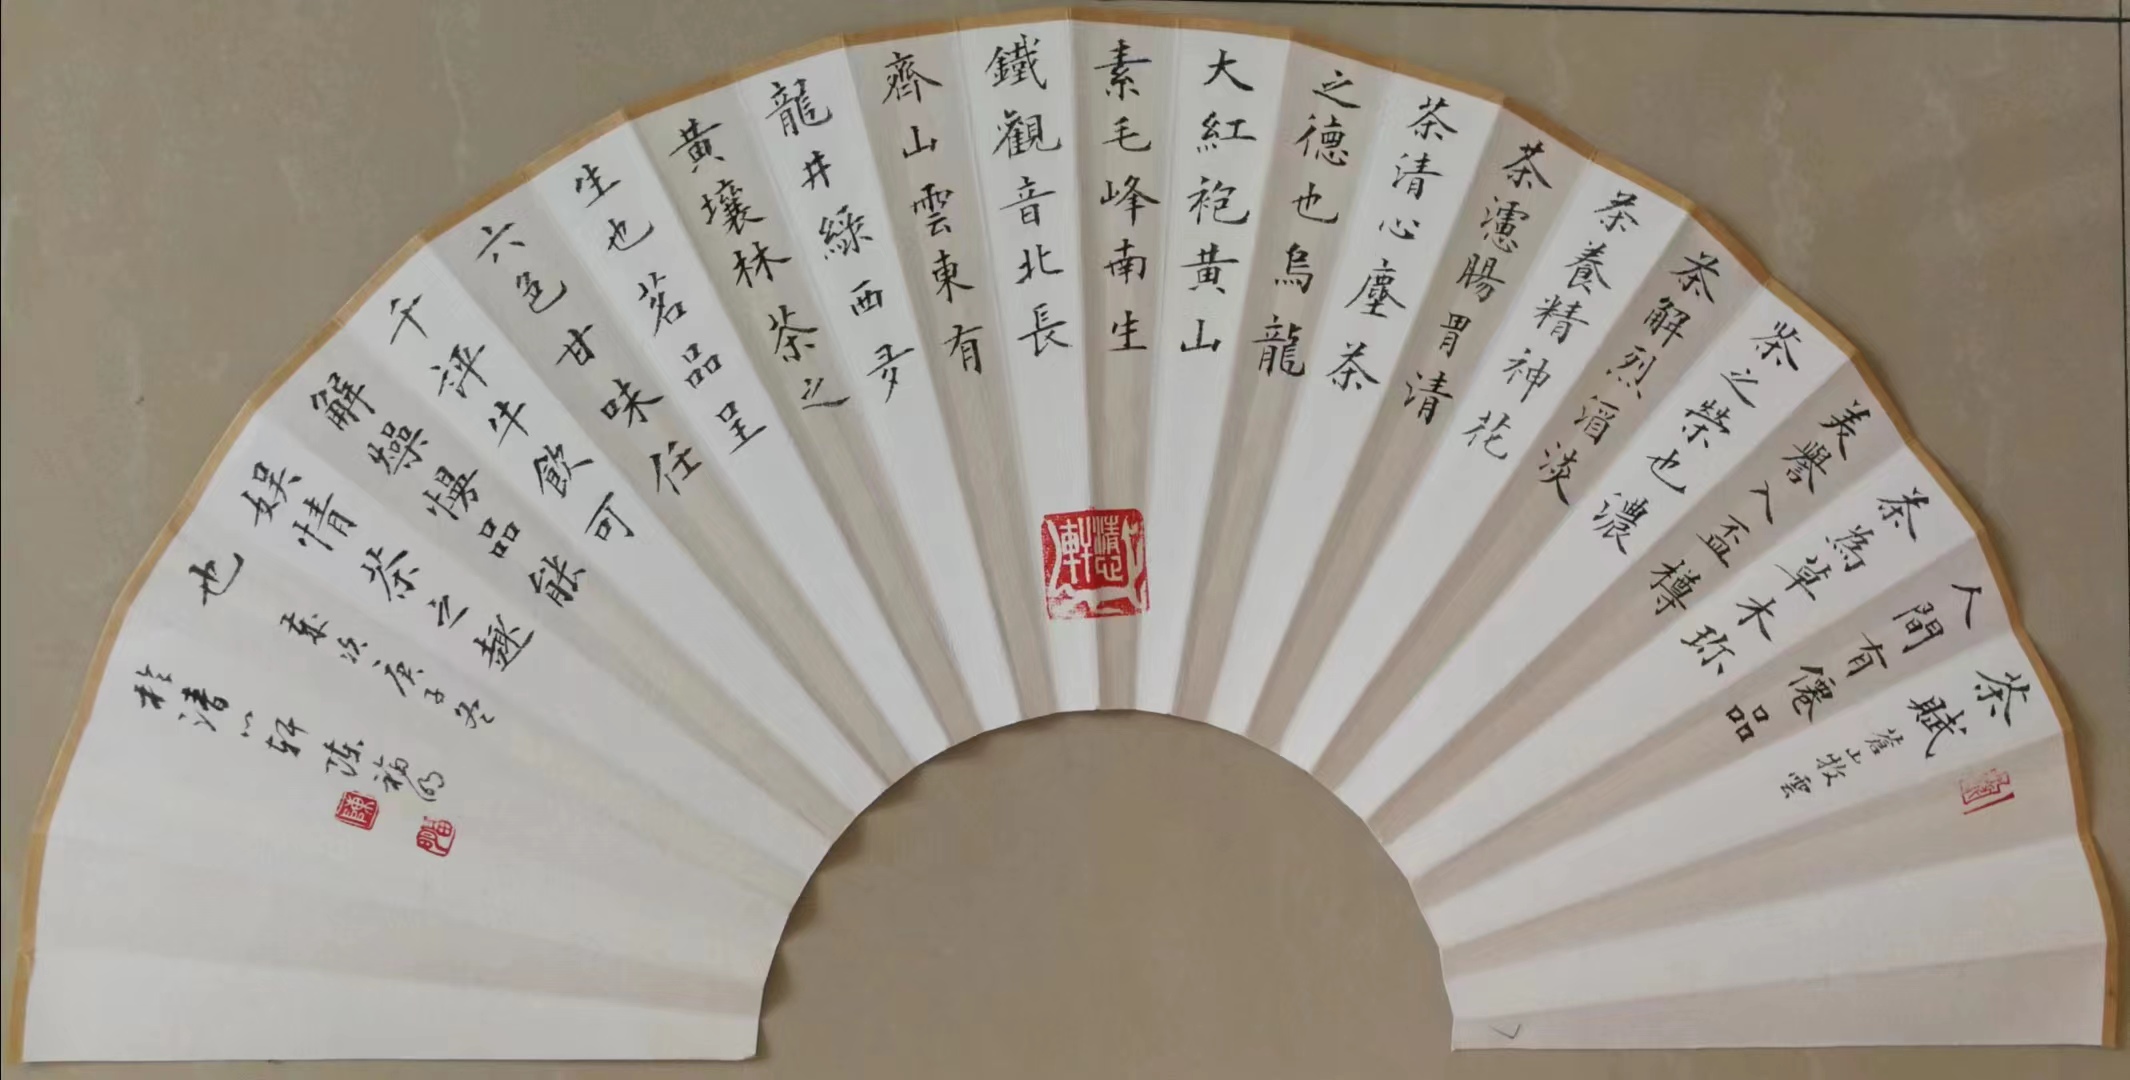 茶賦
蒼山牧雲
人間有僊品
茶為草木珎
美譽入盃樽
茶之榮也濃
茶解烈酒淡
茶養精神花
茶濾腸胃清
茶清心塵茶
之德也烏龍
大紅袍黃山
素毛峰南生
鐵觀音北長
齊山雲東有
龍井綠西夛
黃壤林茶之
生也茗品呈
六色甘味任
千評牛飲可
解燥慢品能
娛情茶之趣
也
歲次庚子冬
於清心軒陳福明
陳